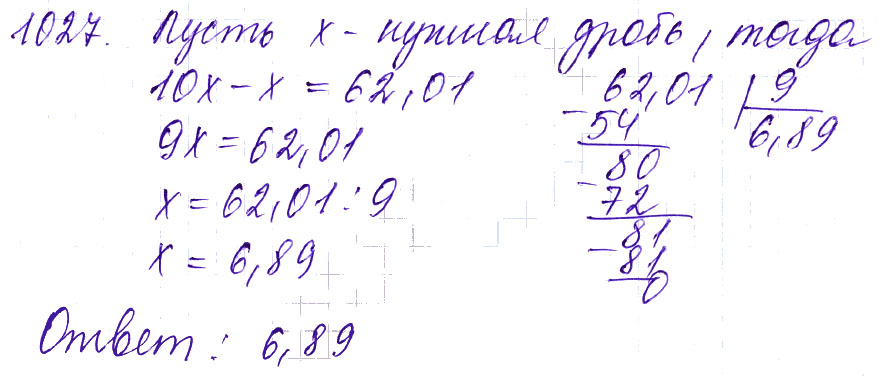 1027. Пусть x - нужная дробь, тогда
10x - x = 62,01
9x = 62,01
x = 62,01 : 9
x = 6,89
62,01 | 9
- 54 6,89
80
- 72
81
- 81
0
Ответ: 6,89